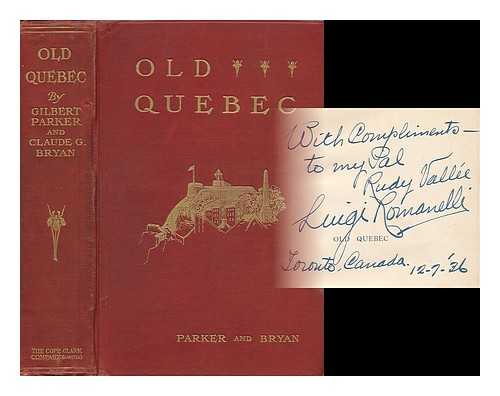 OLD
QUEBEC
By
GILBERT
PARKER
AND
CLAUDE G.
BRYAN
THE COPP, CLARK
COMPANY LIMITED
OLD
QUEBEC
PARKER AND BRYAN
With Compliments—
to my Pal
Rudy Vallée
Luigi Romanelli
OLD QUEBEC
Toronto, Canada.
12-7-'36